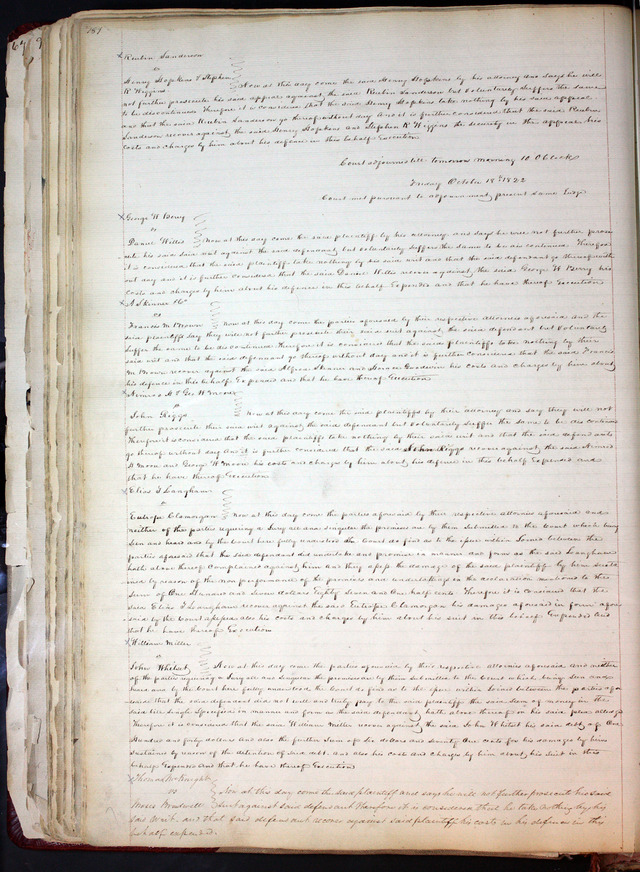 Reubin Sanderson
vs
Henry Hopkins & Stephen
R Wiggins Now at this day come the said Henry Hopkins by his attorney and says he will
not further prosecute his said appeal against the said Reubin Sanderson but voluntarily suffers the same
to be discontinued Therefore it is considered that the said Henry Hopkins take nothing by his said appeal
and that the said Reubin Sanderson go thereof without day and it is further considered that the said Reubin
Sanderson recover against the said Henry Hopkins and Stephen R Wiggins the security in the appeal his
costs and charges by him about his defence in this behalf Execution
Court adjourned till tomorrow morning 10 O Clock
Friday October 18th 1822
Court met pursuant to adjournment present same Judge
George W Berry
vs
Daniel Willis Now at this day come the said plaintiff by his attorney and says he will not further prose-
cute his said suit against the said defendant but voluntarily suffers the same to be discontinued Therefore
it is considered that the said plaintiff take nothing by his said writ and that the said defendant go thereof with
out day and it is further considered that the said Daniel Willis recover against the said George W Berry his
costs and charges by him about his defence in this behalf Expended and that he have thereof Execution
A Skinner & Co
vs
Francis M Brown Now at this day come the parties aforesaid by their respective attornies aforesaid and the
said plaintiffs say they will not further prosecute their said suit against the said defendant but voluntarily
suffer the same to be discontinued Therefore it is considered that the said plaintiffs take nothing by their
said writ and that the said defendant go thereof without day and it is further considered that the said Francis
M Brown recover against the said Skinner and his costs and charges by him about
his defence in this behalf Expended and that he have thereof Execution
H & Geo W Moon
vs
John Riggs Now at this day come the said plaintiffs by their attorney and say they will not
further prosecute their said suit against the said defendant but voluntarily suffer the same to be discontinued
Therefore it is considered that the said plaintiffs take nothing by their said writ and that the said defendant
go thereof without day and it is further considered that the said John Riggs recover against the said
H Moon and George W Moon his costs and charges by him about his defence in this behalf Expended and
that he have thereof Execution
Elias T Langham
vs
Eutrope Clamorgan Now at this day come the parties aforesaid by their respective attornies aforesaid and
neither of the parties requiring a Jury all and singular the premises are by them submitted to the Court which being
seen and heard and by the Court here fully understood the Court do find as to the issue within Joined between the
parties aforesaid that the said defendant did undertake and promise in manner and form as the said Langham
hath above thereof complained against him and they assess the damages of the said plaintiff by him sustai
ned by reason of the non performance of the promises and undertakings in the declaration mentioned to the
sum of One Hundred and Seven dollars Eighty Seven and One half cents Therefore it is considered that the
said Elias T Langham recover against the said Eutrope Clamorgan his damages aforesaid in form afore
said by the Court assessed also his costs and charges by him about his suit in this behalf Expended and
that he have thereof Execution
William Miller
vs
John Whitset Now at this day come the parties aforesaid by their respective attornies aforesaid and neither
of the parties requiring a Jury all and singular the premises are by them submitted to the Court which being seen and
heard and by the Court here fully understood the Court do find as to the issue within Joined between the parties afore
said that the said defendant did not well and truly pay to the said plaintiff the said sum of money in the
said bill single specified in manner and form as the said defendant hath above thereof in his said plea alledged
Therefore it is considered that the said William Miller recover against the said John Whitset his said debt of One
Hundred and forty dollars and also the further sum of six dollars and seventy five cents for his damages by him
sustained by reason of the detention of said debt and also his cost and charges by him about his suit in this
behalf Expended and that he have thereof Execution
Thomas McKnight
vs
Now at this day come the said plaintiff and says he will not further prosecute his said
suit against said defendant Therefore it is considered that he take nothing by his
said writ and that said defendant recover against said plaintiff his costs in his defence in this
behalf expended.